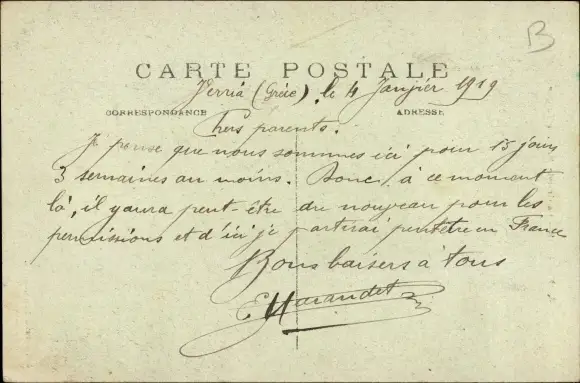 B
CARTE POSTALE
Verria (Grèce), le 4 Janvier 1919
CORRESPONDANCE ADRESSE
Chers parents.
Je pense que nous sommes ici pour 15 jours
3 semaines au moins. Donc à ce moment
là, il y aura peut-être du nouveau pour les
permissions et d'ici je partirai peutêtre en France
Bons baisers à tous